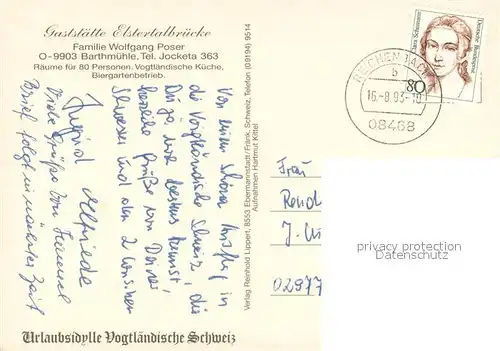 Gaststätte Elstertalbrücke
Familie Wolfgang Poser
O-9903 Barthmühle, Tel. Jocketa 363
Räume für 80 Personen. Vogtländische Küche,
Biergartenbetrieb.
Von einem schönen Ausflug in
die Vogtländische Schweiz, die
Du ja bestens kennst,
herzliche Grüße von Deiner
Schwester und den 2
Ingrid Elfriede
Viele Grüße von
Brief folgt in nächster Zeit
Urlaubsidylle Vogtländische Schweiz
Verlag Reinhold Lippert, 8553 Ebermannstadt/Fränk. Schweiz, Telefon (09194) 9514
Aufnahmen Hartmut Kittel
Clara Schumann
Deutsche Bundespost
80
REICHENBACH
b
16.-8.93-18
08468
Frau
Rend
J.
02977
privacy protection